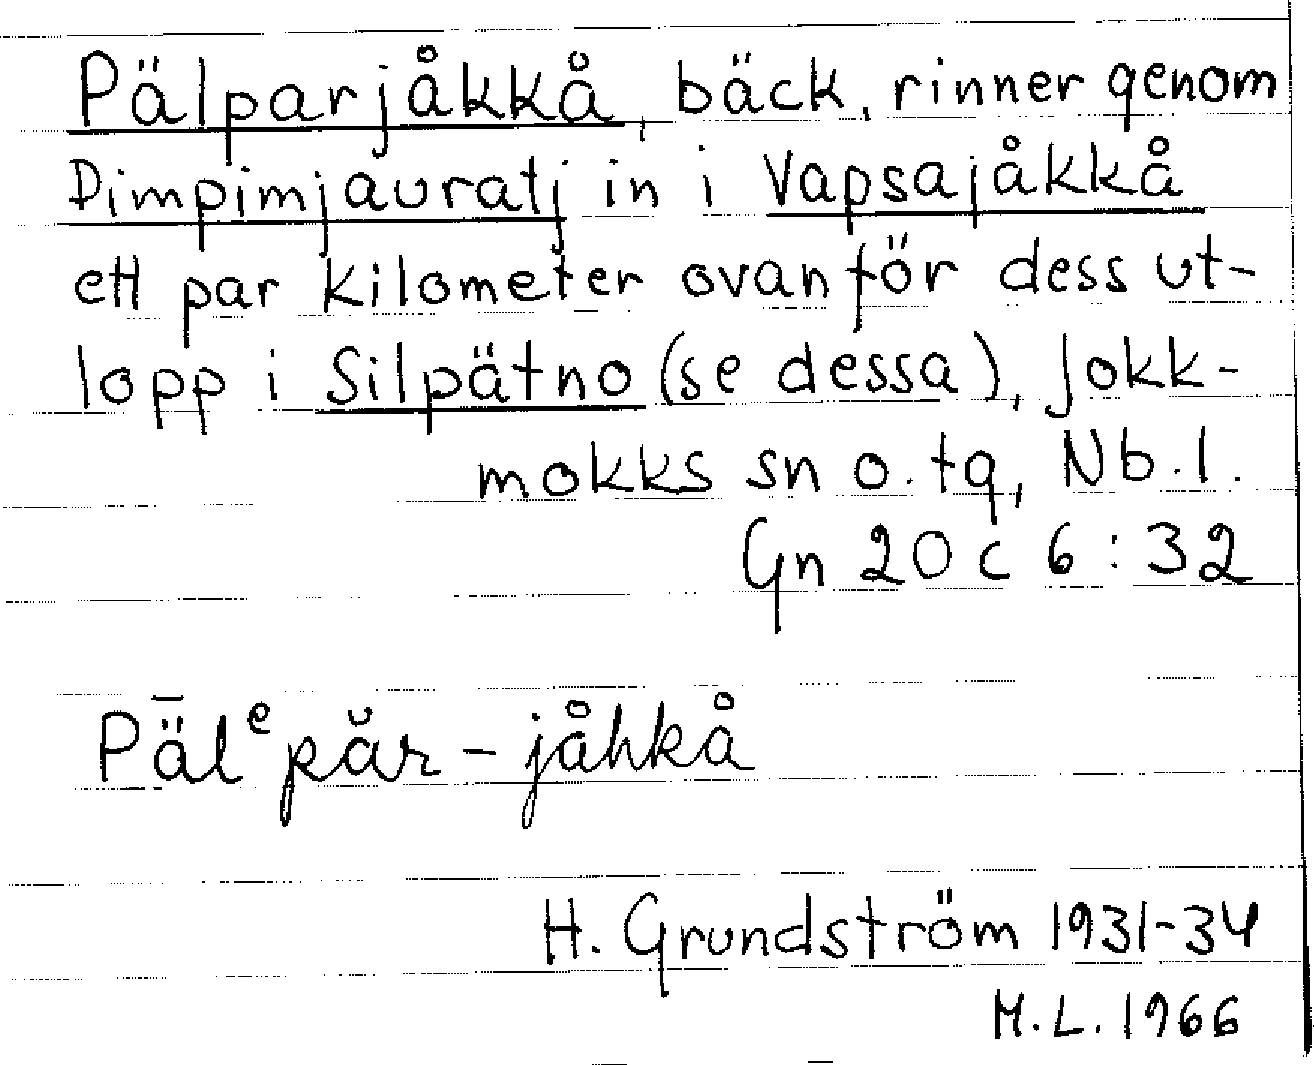 Pälparjåkkå, bäck, rinner genom
Dimpimjauratj in i Vapsajåkkå
ett par kilometer ovanför dess ut-
lopp i Silpätno (se dessa), Jokk-
mokks sn o. tg, Nb. l.
Gn 20 c 6 : 32
Pǟlᵉpăr - jåhkå
H. Grundström 1931-34
M. L. 1966